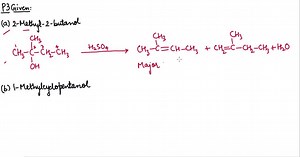 P3 Given:
(a) 2-Methyl-2-butanol
CH₃ CH₃ CH₃
CH₃-C-CH₂-CH₃ H₂SO₄ → CH₃-C=CH-CH₃ + CH₂=C-CH₂-CH₃ + H₂O
OH Major
(b) 1-Methylcyclopentanol